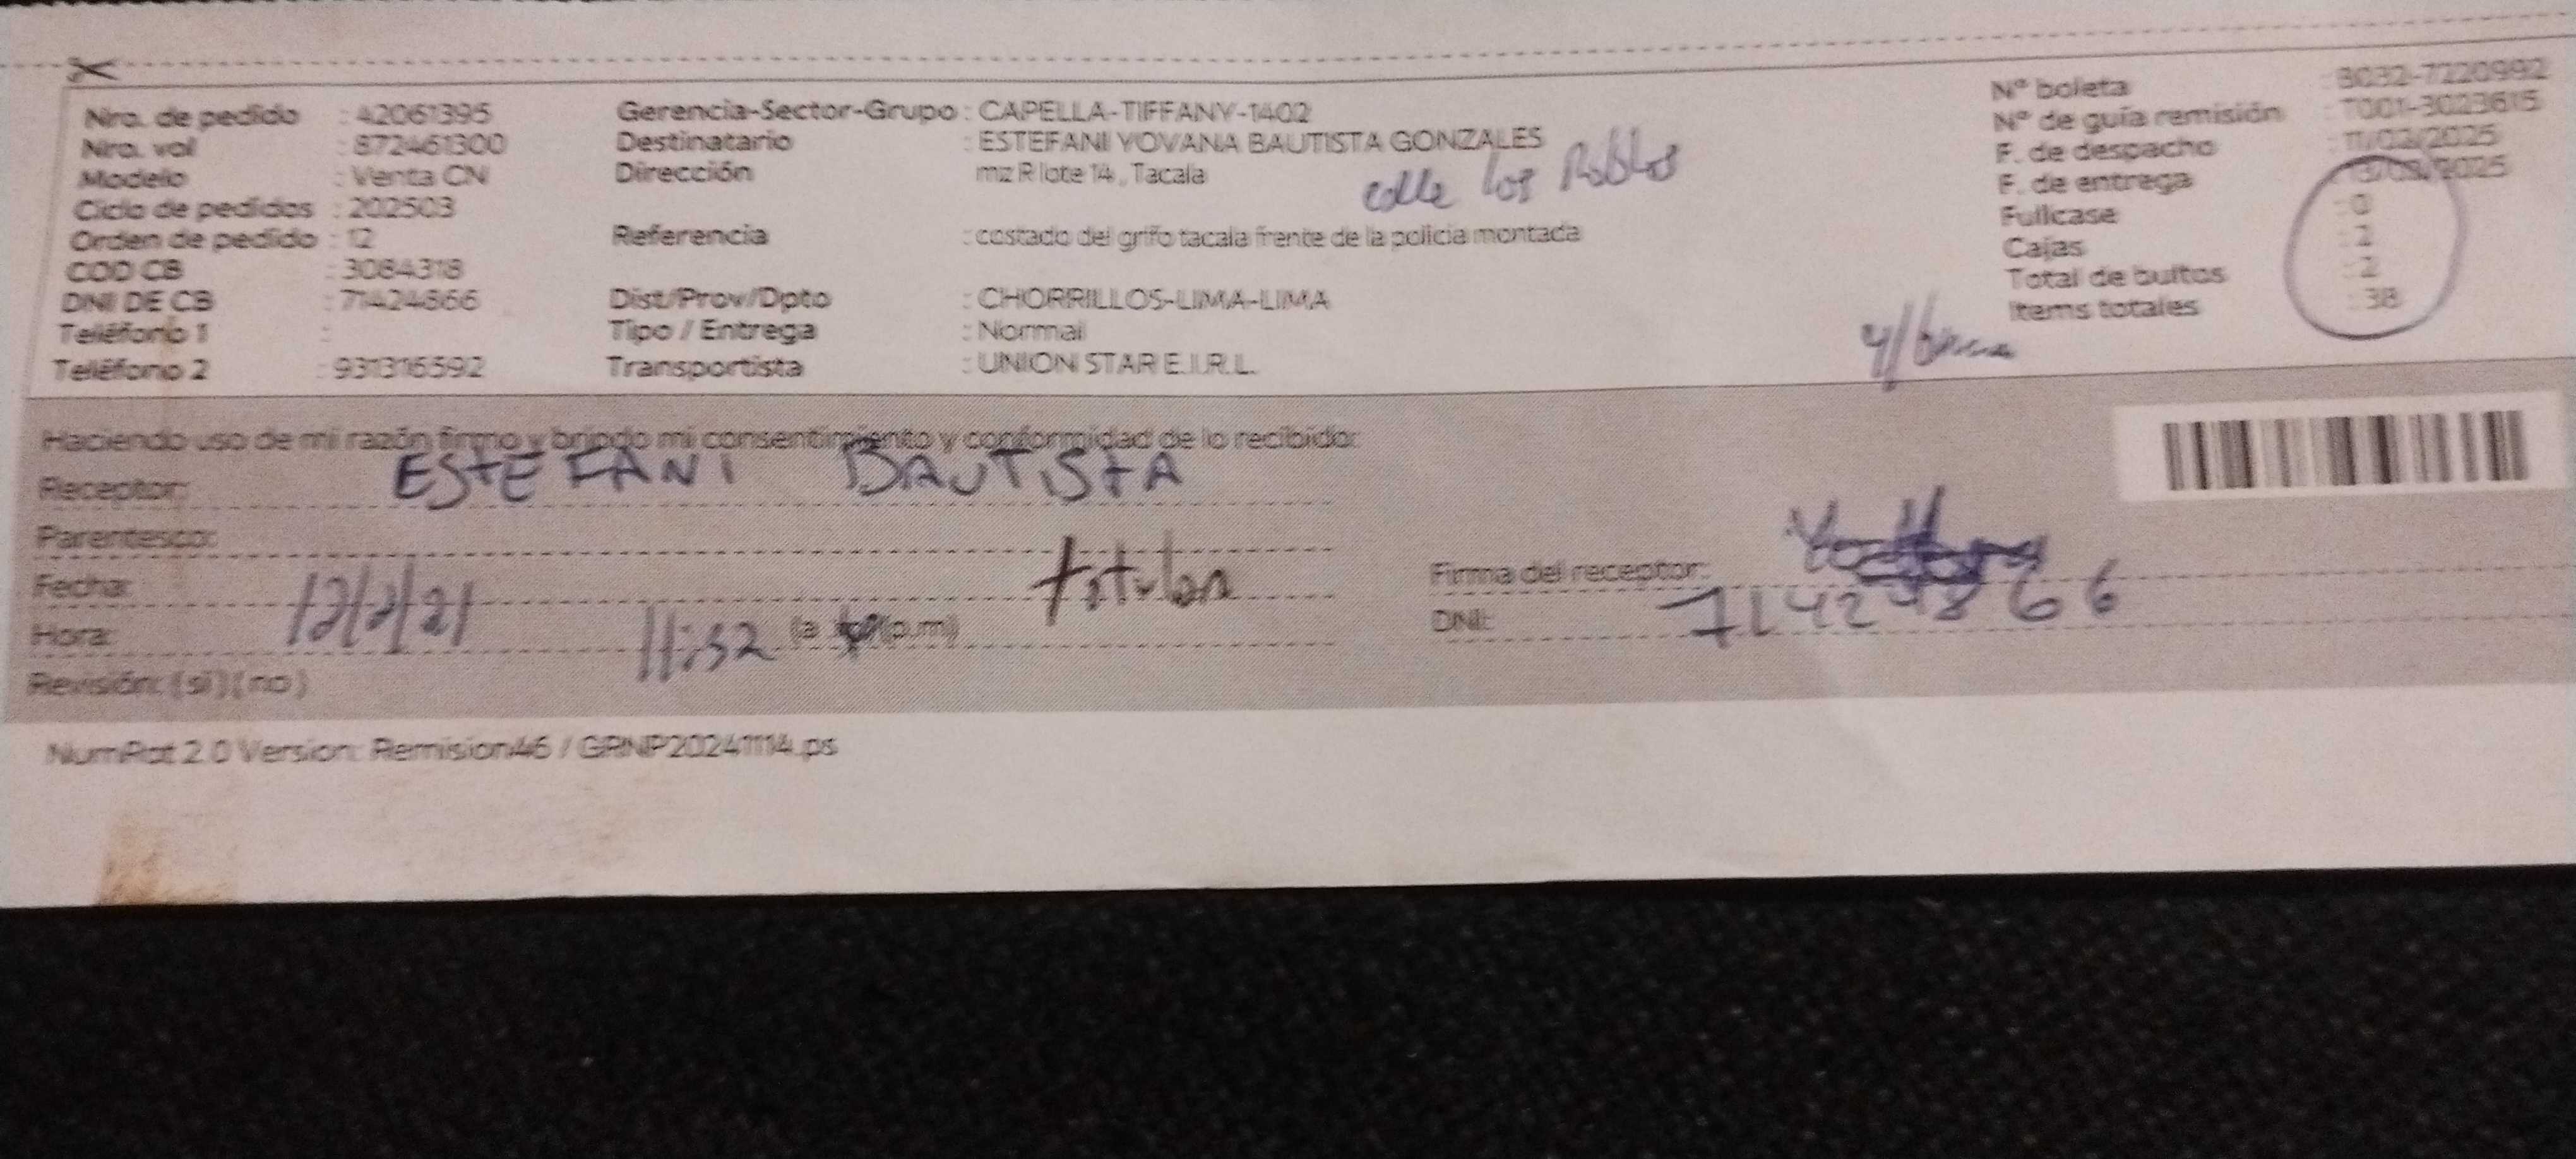 Nro. de pedido : 42061395
Nro. vol : 872461300
Modelo : Venta CN
Ciclo de pedidos : 202503
Orden de pedido : 12
COD CB : 3084318
DNI DE CB : 71424866
Teléfono 1 :
Teléfono 2 : 931316592
Gerencia-Sector-Grupo : CAPELLA-TIFFANY-1402
Destinatario : ESTEFANI YOVANA BAUTISTA GONZALES
Dirección mz R lote 14 , Tacala
calle los Robles
Referencia : costado del grifo tacala frente de la policia montada
Dist/Prov/Dpto : CHORRILLOS-LIMA-LIMA
Tipo / Entrega : Normal
Transportista : UNION STAR E.I.R.L.
Nº boleta : B032-7220992
Nº de guía remisión : T001-3023615
F. de despacho : 11/02/2025
F. de entrega /2025
Fullcase : 0
Cajas : 2
Total de bultos : 2
Items totales : 38
Haciendo uso de mi razón firmo y brindo mi consentimiento y conformidad de lo recibido:
Receptor: ESTEFANI BAUTISTA
Parentesco: titular
Fecha: 12/2/21
Hora: 11:52 (a (p.m)
Revisión: ( si ) ( no )
Firma del receptor:
DNI: 71424866
NumRot 2.0 Version: Remision46 / GRNP20241114.ps